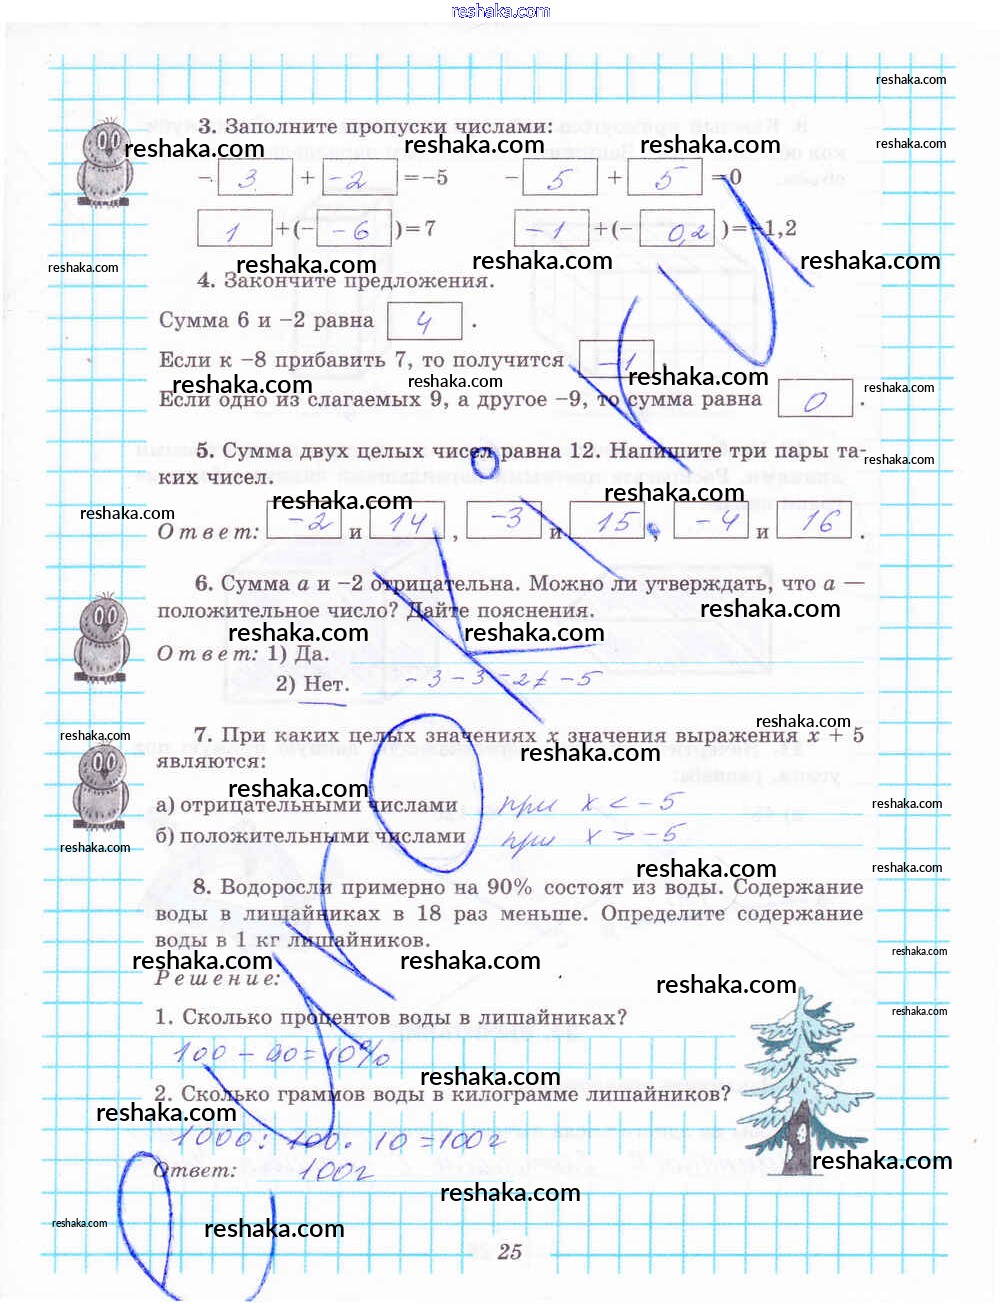 reshaka.com
reshaka.com
3. Заполните пропуски числами:
reshaka.com reshaka.com reshaka.com reshaka.com
- 3 + -2 =-5 - 5 + 5 =0
1 +(- -6 )=7 -1 +(- 0,2 )=-1,2
reshaka.com reshaka.com reshaka.com reshaka.com
4. Закончите предложения.
Сумма 6 и -2 равна 4 .
Если к -8 прибавить 7, то получится -1
reshaka.com reshaka.com reshaka.com reshaka.com
Если одно из слагаемых 9, а другое -9, то сумма равна 0 .
5. Сумма двух целых чисел равна 12. Напишите три пары та-
reshaka.com
ких чисел.
reshaka.com reshaka.com reshaka.com
Ответ: -2 и 14 , -3 и 15 , -4 и 16 .
6. Сумма a и -2 отрицательна. Можно ли утверждать, что a —
положительное число? Дайте пояснения.
reshaka.com
reshaka.com reshaka.com
Ответ: 1) Да.
2) Нет. -3-3-2≠-5
reshaka.com
7. При каких целых значениях x значения выражения x + 5
reshaka.com
являются:
reshaka.com
reshaka.com
а) отрицательными числами при x < -5
reshaka.com
б) положительными числами при x > -5
reshaka.com
reshaka.com reshaka.com
8. Водоросли примерно на 90% состоят из воды. Содержание
воды в лишайниках в 18 раз меньше. Определите содержание
воды в 1 кг лишайников.
reshaka.com reshaka.com reshaka.com
Решение:
reshaka.com
1. Сколько процентов воды в лишайниках?
reshaka.com
100 - 90=10%
reshaka.com
2. Сколько граммов воды в килограмме лишайников?
reshaka.com
1000: 100. 10 =100г
reshaka.com
Ответ: 100г
reshaka.com
reshaka.com reshaka.com
25
reshaka.com